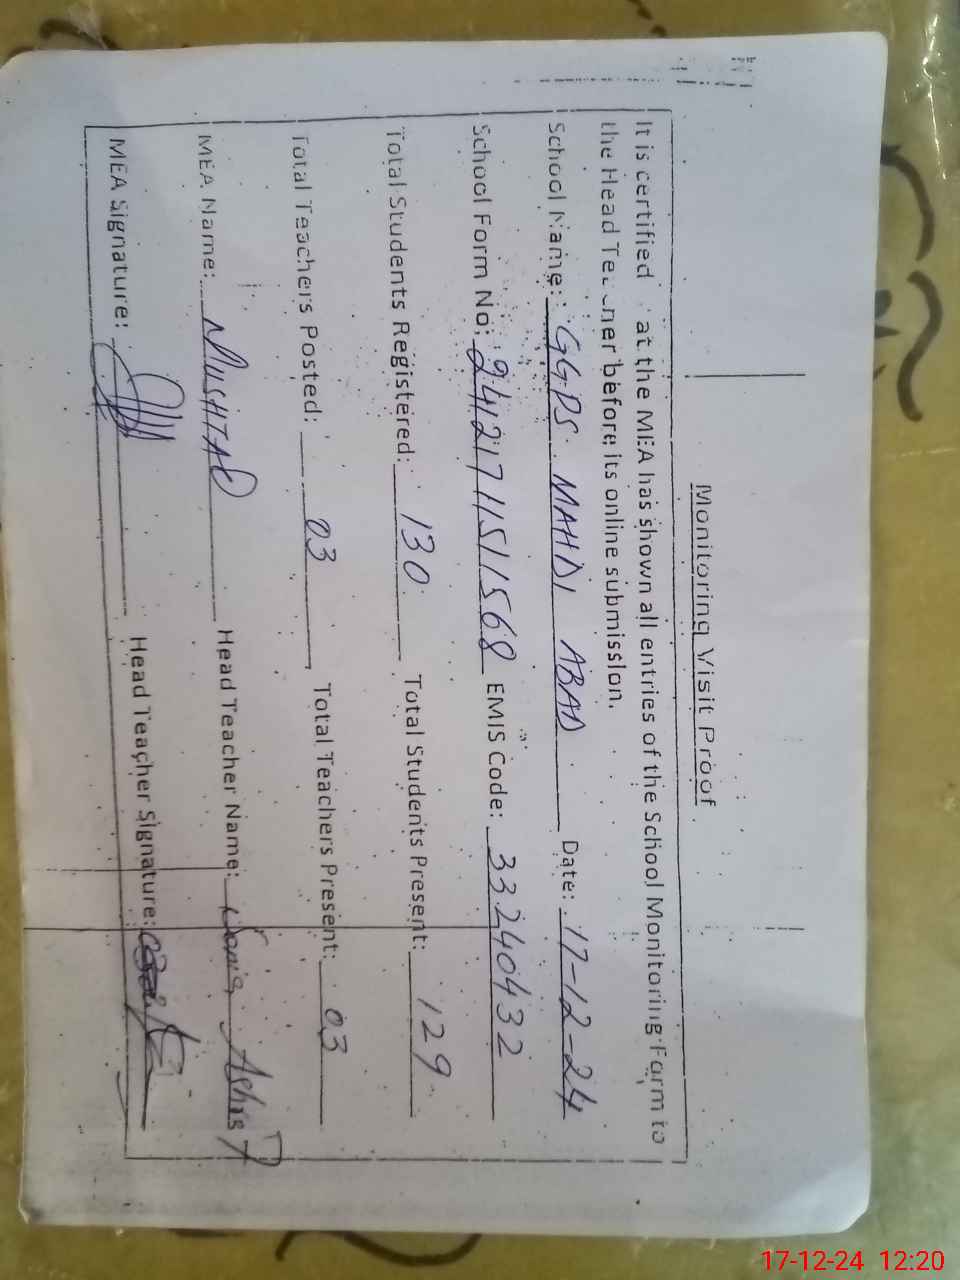 Monitoring Visit Proof
It is certified at the MEA has shown all entries of the School Monitoring Form to
the Head Teacher before its online submission.
School Name: GGPS MAHDI ABAD Date: 17-12-24
School Form No: 24121711511568 EMIS Code: 33240432
Total Students Registered: 130 Total Students Present: 129
Total Teachers Posted: 03 Total Teachers Present: 03
MEA Name: MUSHTAQ Head Teacher Name: Ashraf
MEA Signature: Head Teacher Signature:
17-12-24 12:20